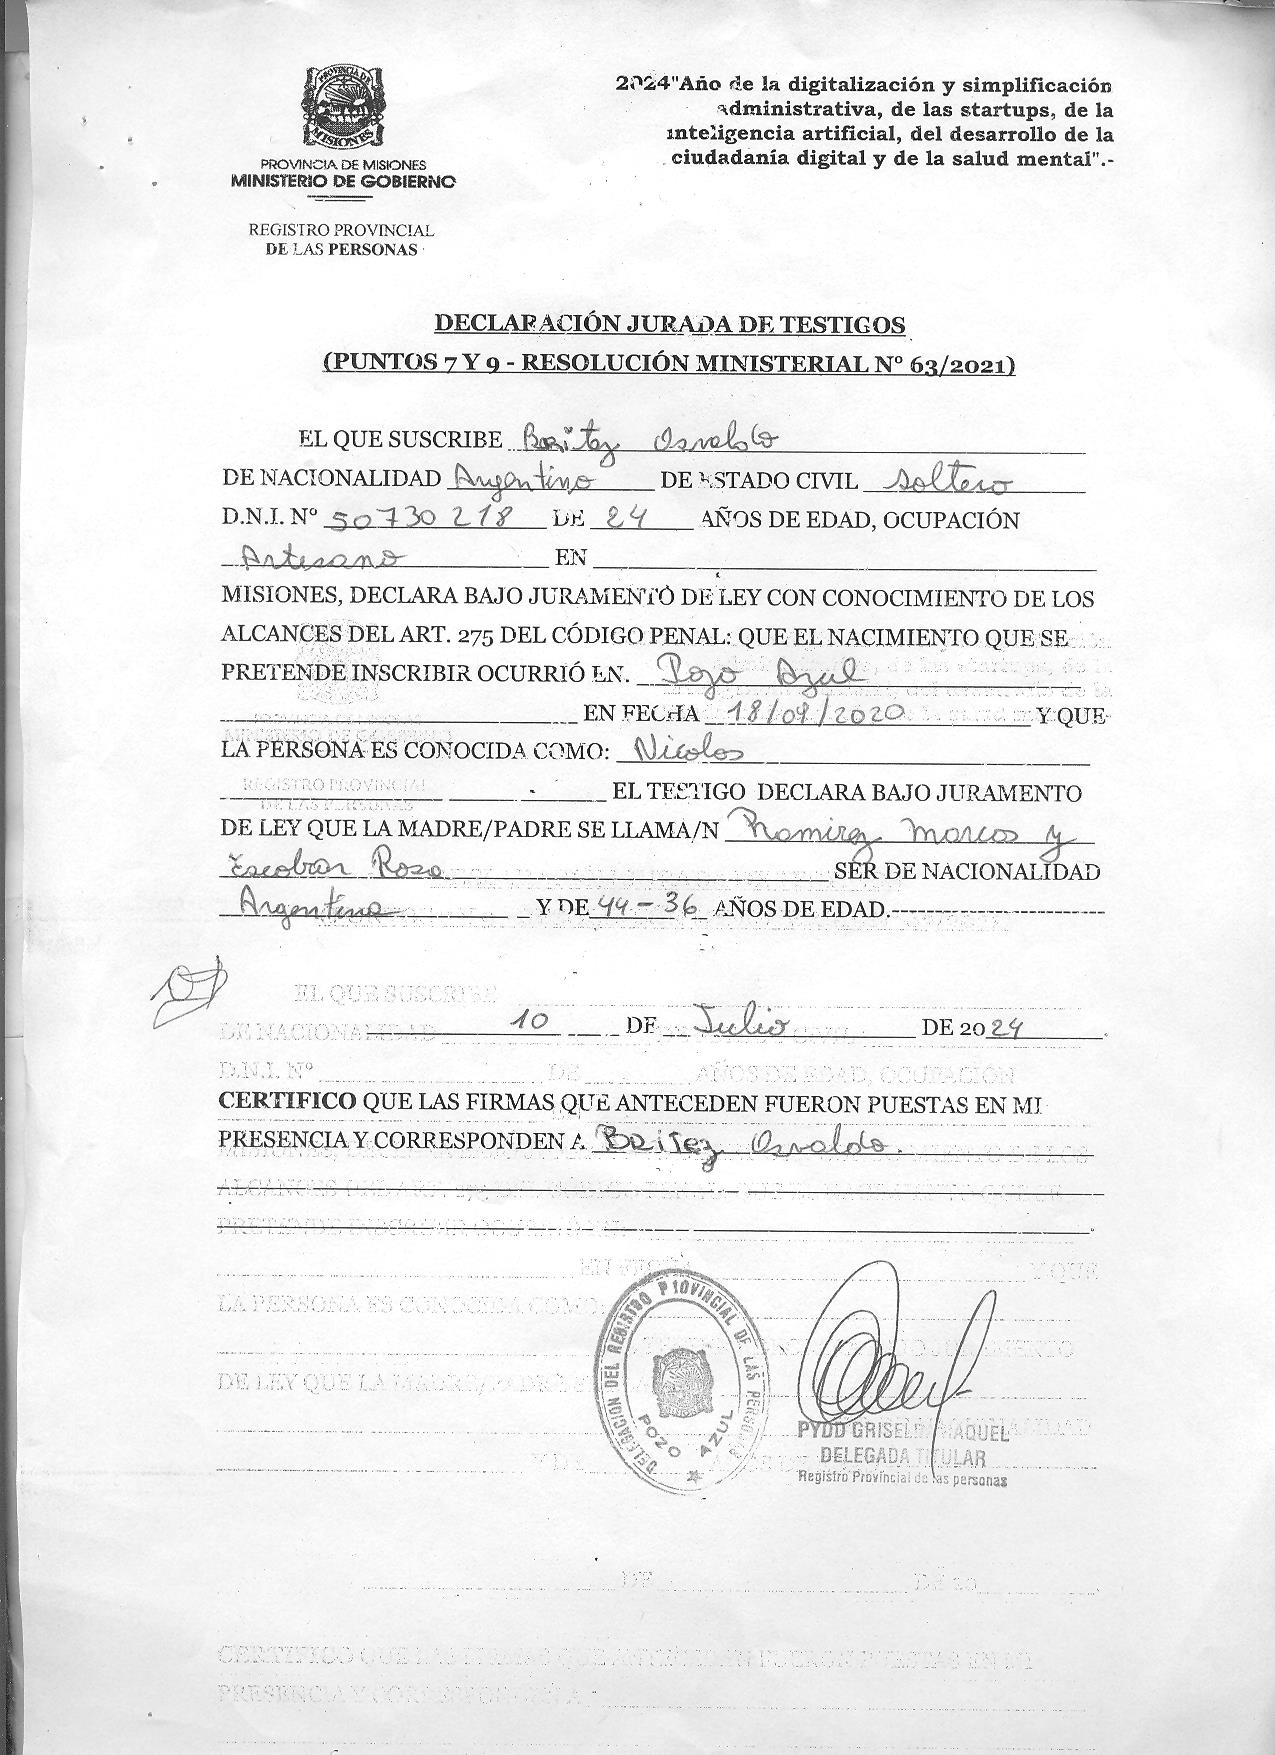 PROVINCIA DE
MISIONES
PROVINCIA DE MISIONES
MINISTERIO DE GOBIERNO
REGISTRO PROVINCIAL
DE LAS PERSONAS
2024"Año de la digitalización y simplificación
administrativa, de las startups, de la
inteligencia artificial, del desarrollo de la
ciudadanía digital y de la salud mental".-
DECLARACIÓN JURADA DE TESTIGOS
(PUNTOS 7 Y 9 - RESOLUCIÓN MINISTERIAL Nº 63/2021)
EL QUE SUSCRIBE Benitez Osvaldo
DE NACIONALIDAD Argentino DE ESTADO CIVIL soltero
D.N.I. Nº 50730218 DE 24 AÑOS DE EDAD, OCUPACIÓN
Artesano EN
MISIONES, DECLARA BAJO JURAMENTO DE LEY CON CONOCIMIENTO DE LOS
ALCANCES DEL ART. 275 DEL CÓDIGO PENAL: QUE EL NACIMIENTO QUE SE
PRETENDE INSCRIBIR OCURRIÓ EN. Pozo Azul
EN FECHA 18/09/2020 Y QUE
LA PERSONA ES CONOCIDA COMO: Nicolas
EL TESTIGO DECLARA BAJO JURAMENTO
DE LEY QUE LA MADRE/PADRE SE LLAMA/N Ramirez Marcos y
Escobar Rosa SER DE NACIONALIDAD
Argentina Y DE 44-36 AÑOS DE EDAD.------------------------
10 DE Julio DE 2024
CERTIFICO QUE LAS FIRMAS QUE ANTECEDEN FUERON PUESTAS EN MI
PRESENCIA Y CORRESPONDEN A Benitez Osvaldo.
DELEGACION DEL REGISTRO PROVINCIAL DE LAS PERSONAS
POZO AZUL
PYDD GRISELDA RAQUEL
DELEGADA TITULAR
Registro Provincial de las personas